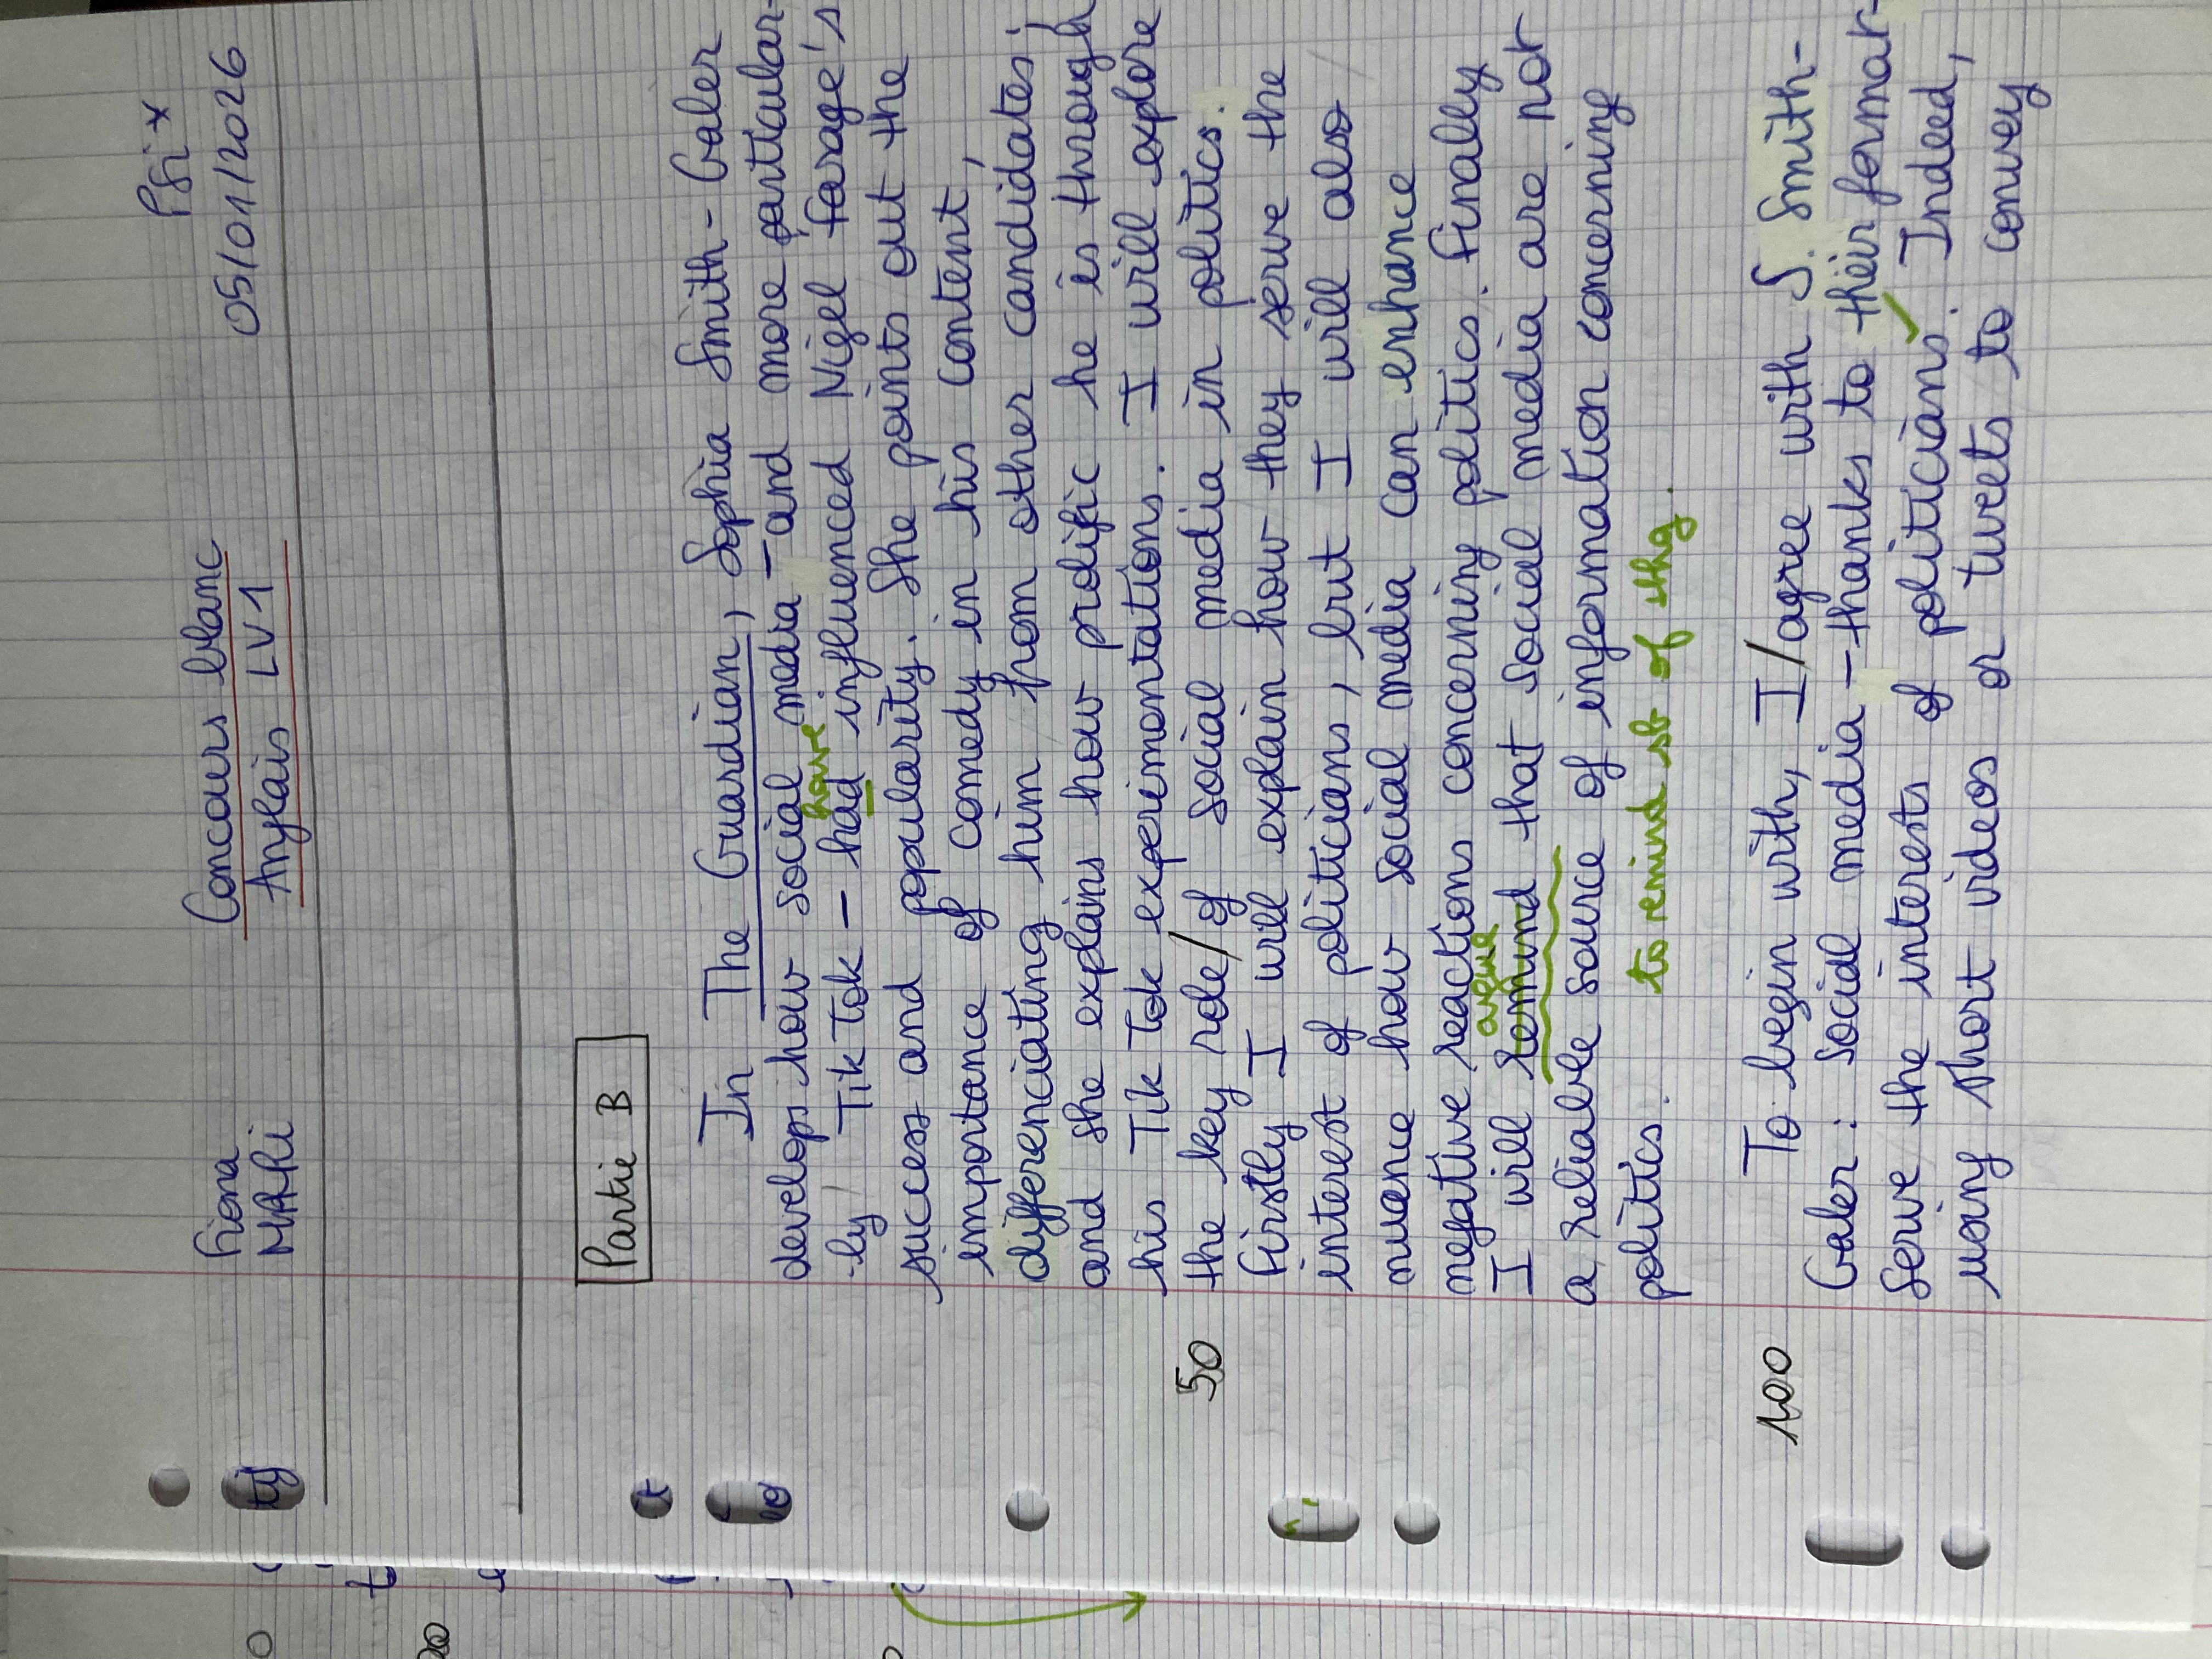 Fiona
MAPii
Concours blanc
Anglais LV1
Psi*
05/01/2026
Partie B
In The Guardian, Sophia Smith-Galer
develops how social media - and more particular-
have
-ly TikTok - had influenced Nigel Farage's
success and popularity. She points out the
importance of comedy in his content,
differenciating him from other candidates;
and she explains how prolific he is through
his TikTok experimentations. I will explore
50 the key role/of social media in politics.
Firstly I will explain how they serve the
interest of politicians, but I will also
nuance how social media can enhance
negative reactions concerning politics. Finally
argue
I will remind that social media are not
a reliable source of information concerning
politics.
to remind sb of sthg.
100 To begin with, I/agree with S. Smith-
Galer: social media - thanks to their format-
serve the interests of politicians. Indeed,
using short videos or tweets to convey